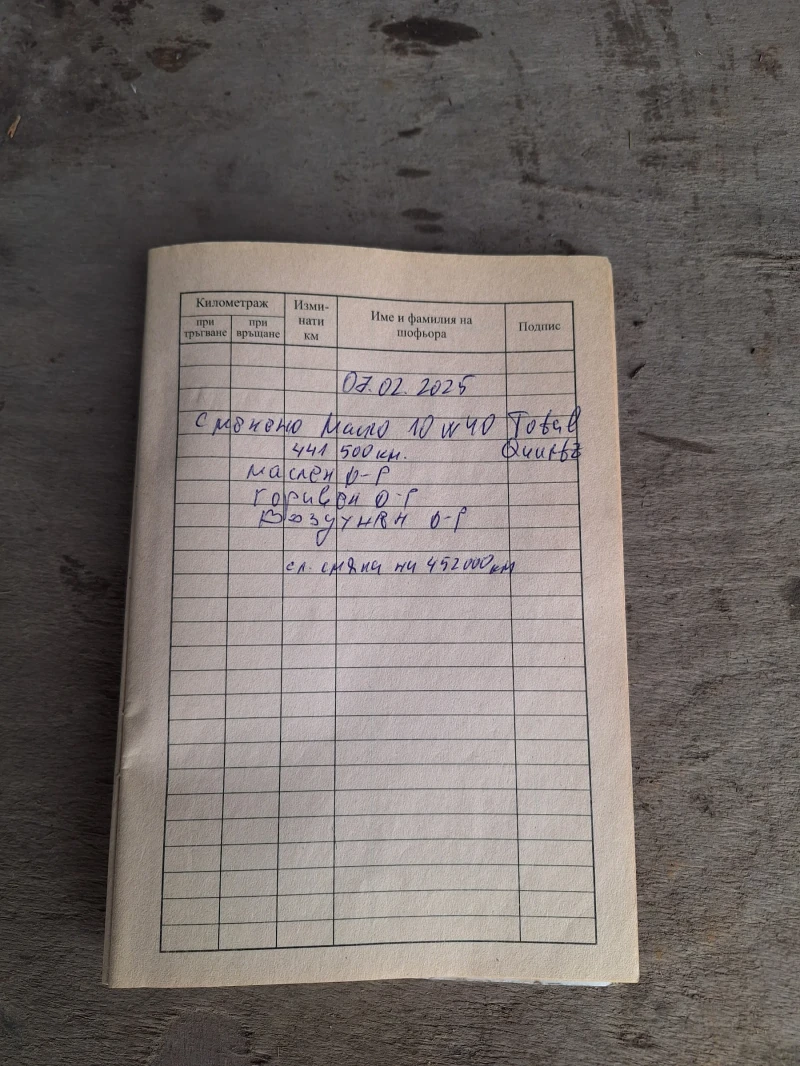 Километраж
при тръгване
при връщане
Изми-
нати
км
Име и фамилия на
шофьора
Подпис
07.02.2025
Сменено Масло 10w40 Total
441 500 км. Quartz
маслен ф-р
горивен ф-р
Въздушен ф-р
сл. смяна на 452000км